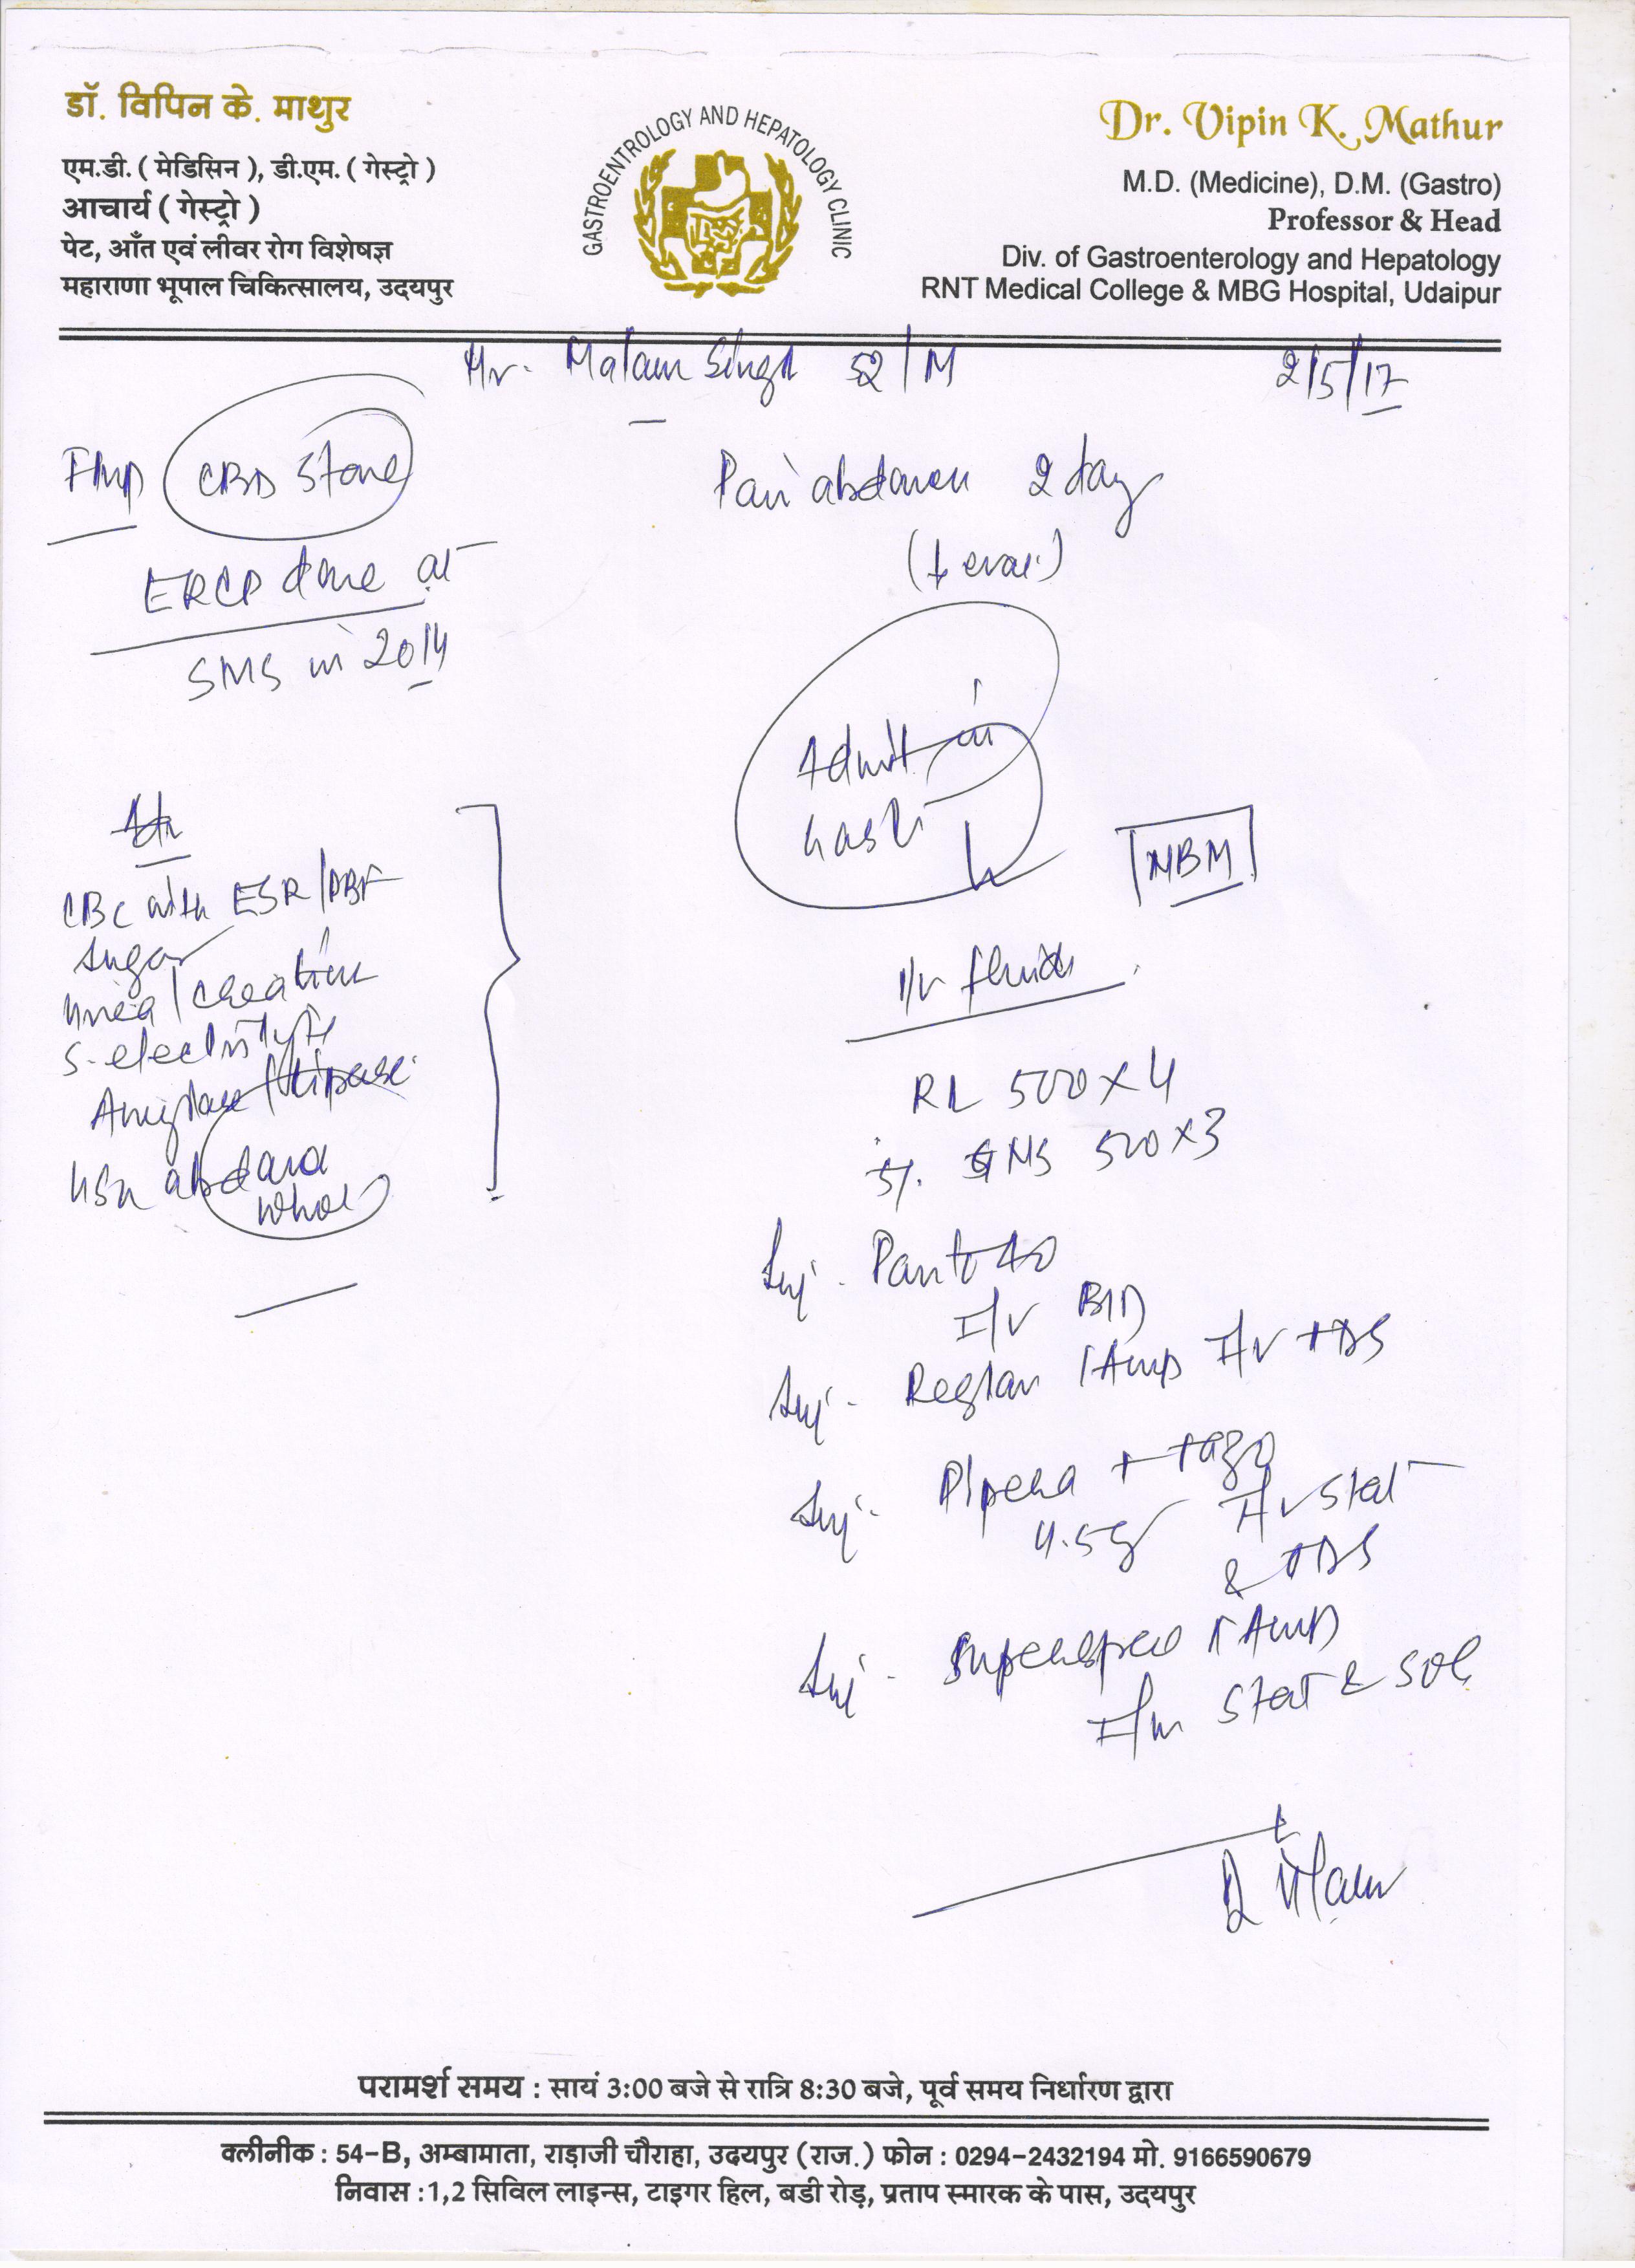 डॉ. विपिन के. माथुर
एम.डी. ( मेडिसिन ), डी.एम. ( गेस्ट्रो )
आचार्य ( गेस्ट्रो )
पेट, आँत एवं लीवर रोग विशेषज्ञ
महाराणा भूपाल चिकित्सालय, उदयपुर
GASTROENTROLOGY AND HEPATOLOGY CLINIC
Dr. Vipin K. Mathur
M.D. (Medicine), D.M. (Gastro)
Professor & Head
Div. of Gastroenterology and Hepatology
RNT Medical College & MBG Hospital, Udaipur
Mr. Singh 52/M
2/5/17
CBD Stone
ERCP done at
SMS in 2014
Pain abdomen 2 day
Admit in
Gastro
NBM
CBC with ESR/PBF
Sugar
Urea/Creatinine
S-electrolyte
Amylase/Lipase
USG abdomen
whole
I/v fluids
RL 500x4
NS 500x3
Inj. Panto 40
I/v BD
Inj. Reglan 1Amp I/v TDS
Inj. Pipera + tazo
4.5g I/v Stat
& TDS
Inj. 1 Amp
I/m Stat & SOS
परामर्श समय : सायं 3:00 बजे से रात्रि 8:30 बजे, पूर्व समय निर्धारण द्वारा
क्लीनीक : 54-B, अम्बामाता, राड़ाजी चौराहा, उदयपुर (राज.) फोन : 0294-2432194 मो. 9166590679
निवास :1,2 सिविल लाइन्स, टाइगर हिल, बडी रोड़, प्रताप स्मारक के पास, उदयपुर